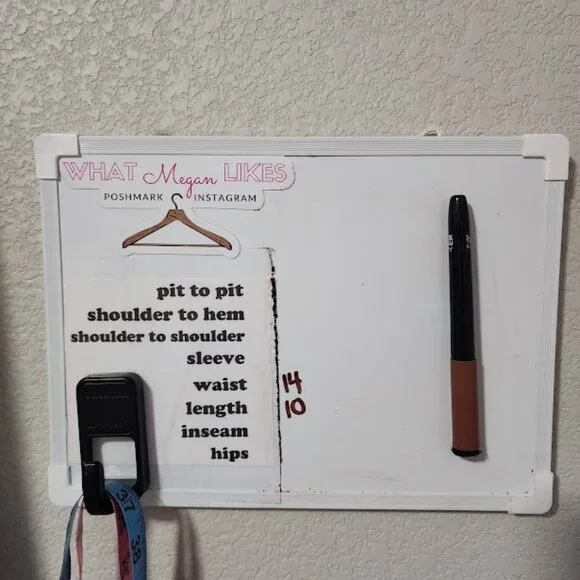 WHAT Megan LIKES
POSHMARK INSTAGRAM
pit to pit
shoulder to hem
shoulder to shoulder
sleeve
waist 14
length 10
inseam
hips